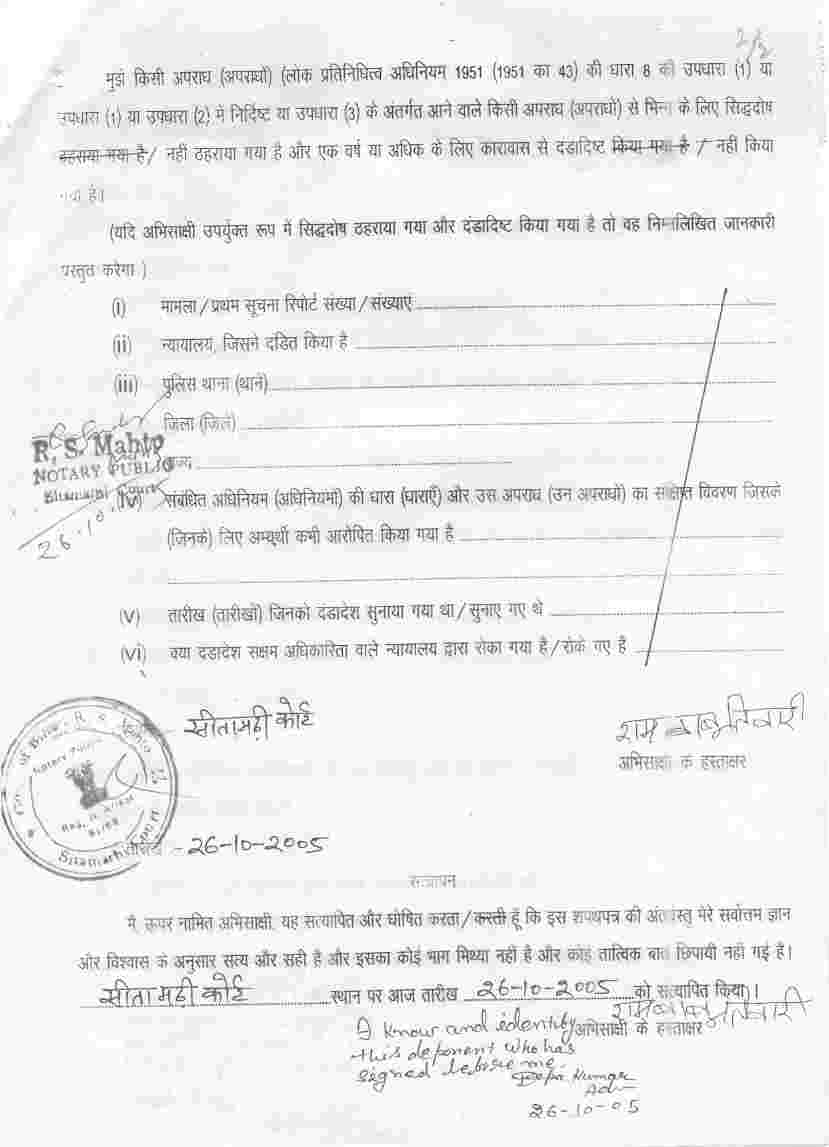 2/2
मुझे किसी अपराध (अपराधों) (लोक प्रतिनिधित्व अधिनियम 1951 (1951 का 43) की धारा 8 की उपधारा (1) या
उपधारा (1) या उपधारा (2) में निर्दिष्ट या उपधारा (3) के अंतर्गत आने वाले किसी अपराध (अपराधों) से भिन्न के लिए सिद्धदोष
ठहराया गया है / नहीं ठहराया गया है और एक वर्ष या अधिक के लिए कारावास से दंडादिष्ट किया गया है / नहीं किया
गया है।
(यदि अभिसाक्षी उपर्युक्त रूप में सिद्धदोष ठहराया गया और दंडादिष्ट किया गया है तो वह निम्नलिखित जानकारी
प्रस्तुत करेगा )
(i) मामला / प्रथम सूचना रिपोर्ट संख्या / संख्याएं
(ii) न्यायालय, जिसने दंडित किया है
(iii) पुलिस थाना (थाने)
जिला (जिले)
R. S. Mahto
NOTARY PUBLIC
Sitamarhi Court
26.10.
(iv) संबंधित अधिनियम (अधिनियमों) की धारा (धाराएँ) और उस अपराध (उन अपराधों) का संक्षिप्त विवरण जिसके
(जिनके) लिए अभ्यर्थी कभी आरोपित किया गया है
(v) तारीख (तारीखों) जिनको दंडादेश सुनाया गया था / सुनाए गए थे
(vi) क्या दंडादेश सक्षम अधिकारिता वाले न्यायालय द्वारा रोका गया है / रोके गए है
सीतामढ़ी कोर्ट
राम बाबु तिवारी
अभिसाक्षी के हस्ताक्षर
Notary Public
Sitamarhi Court
तारीख - 26-10-2005
सत्यापन
मैं, ऊपर नामित अभिसाक्षी, यह सत्यापित और घोषित करता / करती हूँ कि इस शपथपत्र की अंतर्वस्तु मेरे सर्वोत्तम ज्ञान
और विश्वास के अनुसार सत्य और सही है और इसका कोई भाग मिथ्या नहीं है और कोई तात्विक बात छिपायी नहीं गई है।
सीतामढ़ी कोर्ट स्थान पर आज तारीख 26-10-2005 को सत्यापित किया।
राम बाबु तिवारी
अभिसाक्षी के हस्ताक्षर
I know and identify
this deponent who has
signed before me.
Kumar
Adv
26-10-05